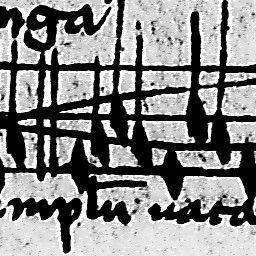 nga
mplu uaca